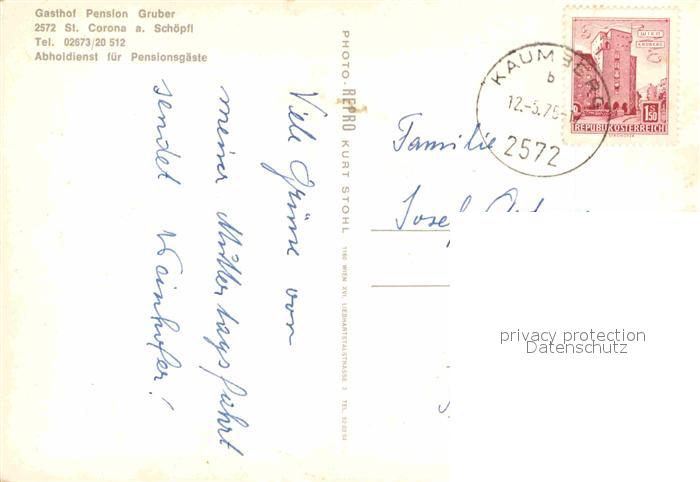 Gasthof Pension Gruber
2572 St. Corona a. Schöpfl
Tel. 02673/20 512
Abholdienst für Pensionsgäste
Viele Grüsse von
meiner Muttertagsfahrt
sendet Weinhofer!
PHOTO-REPRO KURT STOHL 1160 WIEN XVI, LIEBHARTSTALSTRASSE 2 TEL.
KAUMBERG
b
12.-5.75-
2572
WIEN
ERDBERG
1.50
REPUBLIK ÖSTERREICH
Familie
Josef
privacy protection
Datenschutz